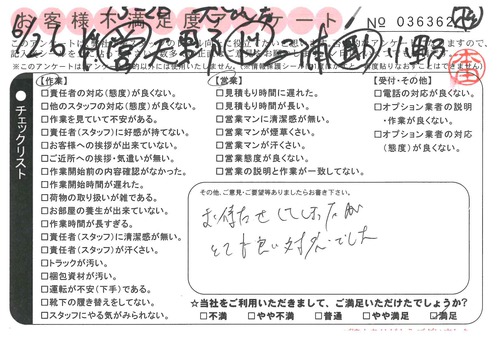 お客様不満足度アンケート
No 036362
※このアンケートは
チェックリスト
【作業】
□責任者の対応(態度)が良くない。
□他のスタッフの対応(態度)が良くない。
□作業を見ていて不安がある。
□責任者(スタッフ)に好感が持てない。
□お客様への挨拶が出来ていない。
□ご近所への挨拶・気遣いが無い。
□作業開始前の内容確認がなかった。
□作業開始時間が遅れた。
□荷物の取り扱いが雑である。
□お部屋の養生が出来ていない。
□作業時間が長すぎる。
□責任者(スタッフ)に清潔感が無い。
□責任者(スタッフ)が汗くさい。
□トラックが汚い。
□梱包資材が汚い。
□運転が不安(下手)である。
□靴下の履き替えをしてない。
□スタッフにやる気がみられない。
【営業】
□見積もり時間に遅れた。
□見積もり時間が長い。
□営業マンに清潔感が無い。
□営業マンが煙草くさい。
□営業マンが汗くさい。
□営業態度が良くない。
□営業の説明と作業が一致してない。
【受付・その他】
□電話の対応が良くない。
□オプション業者の説明
・作業が良くない。
□オプション業者の対応
(態度)が良くない。
その他、ご意見・ご要望等ありましたらお書き下さい。
お待たせしてしまったが
とても良い対応でした
☆当社をご利用いただきまして、ご満足いただけたでしょうか?
□不満 □やや不満 □普通 □やや満足 ☑満足